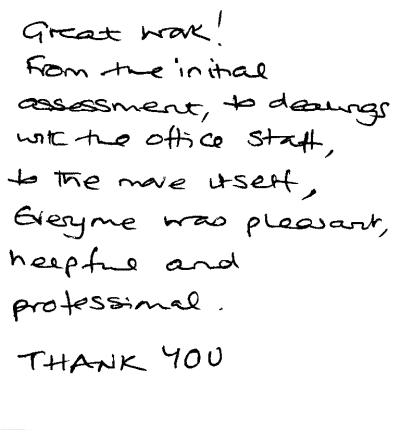 Great work!
From the initial
assessment, to dealings
with the office staff,
to the move itself,
Everyone was pleasant,
helpful and
professional.
THANK YOU